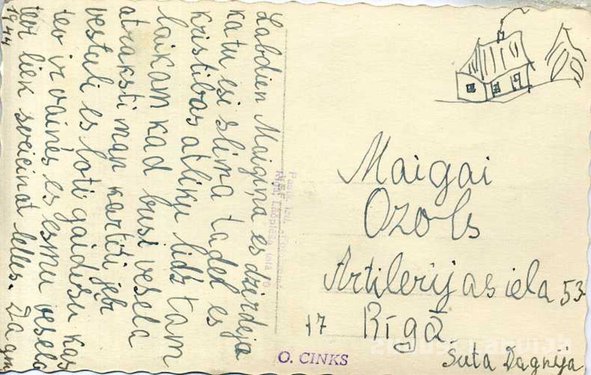 Labdien Maigiņa es dzirdeja
katu esi slima tadeļ es
kristibas atliku lidz tam
laikam kad busi vesela
atraksti man kartiti jeb
vestuli es ļoti gaidišu kas
tev ir vainés es esmu vesela
tev liek sveicinat lelles.
1944
Maigai
Ozols
Artilerijas iela 53
17 Rīgā
O. CINKS
Suta Dagnija